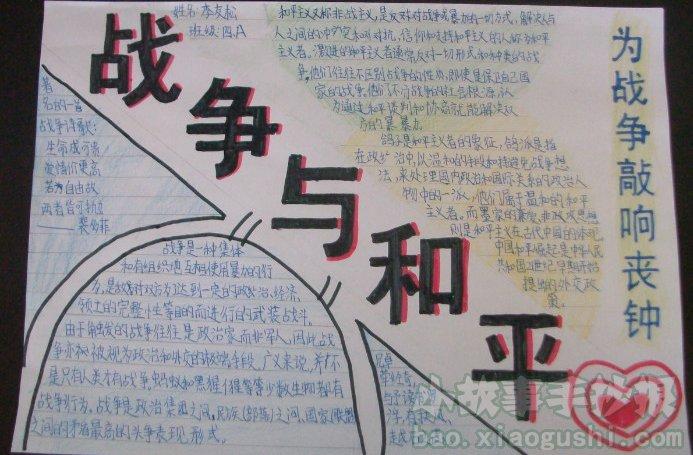 姓名:李友松
班级:四.A
战争与和平
为战争敲响丧钟
和平主义又称非战主义,是反对对战争或暴力的一切方式,解决人与
人之间的冲突和对抗,信仰和支持和平主义的人称为和平
主义者。激进的和平主义者通常反对一切形式和种类的战
争,他们往往不区别战争的性质,即使是保卫自己国
家的战争,他们
为通过和平谈判和协商就能解决双
方的
鸽子是和平主义者的象征,鸽派是指
在政治中,以温和的
法,来处理国内政治和国际关系的政治人
物中的一派,他们属于温和的和平
主义者。而墨家的兼爱、非攻政思想
则是和平主义在古代中国的体现
中国和平崛起是中华人民
共和国21世纪早期开始
提出的外交政
策。
著
名的一首
战争诗歌:
生命成可贵
爱情价更高
若为自由故
两者皆可抛
——裴多菲
战争是一种集体
和有组织地互相使用暴力的行
为,是敌对双方为达到一定的政治、经济、
领土的完整性等目的而进行的武装战斗。
由于触发的战争往往是政治家而非军人,因此战
争亦被视为政治和外交的极端手段。广义来说,并不
是只有人类才有战争,蚂蚁和黑猩猩等少数生物都有
战争行为。战争是政治集团之间、民族(部落)之间、国家(联盟)
之间的矛盾最高的斗争表现形式。
小故事手抄报
bao.xiaogushi.com